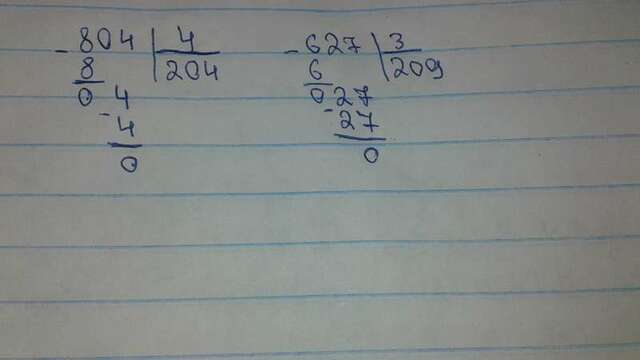 -804 | 4
8 | 204
0 4
- 4
0
-627 | 3
6 | 209
0 27
- 27
0